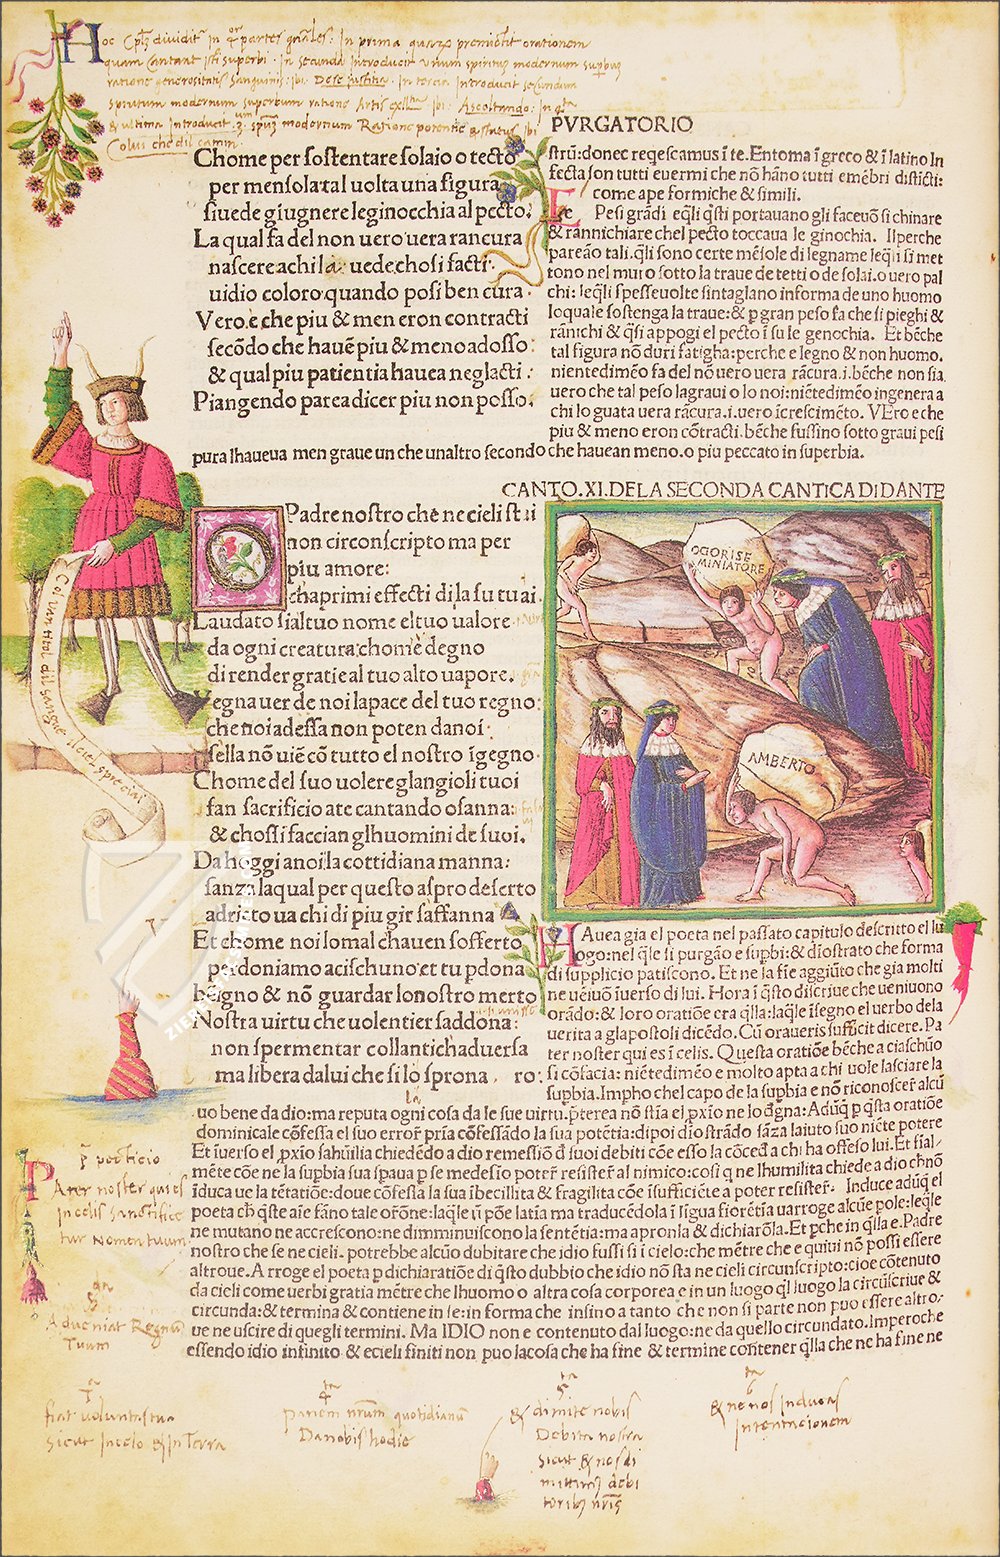 Hoc Cplm dividitr in qr partes gnales: In prima quarum premictit orationem
quam Cantant isti superbi. In secunda Introducit unum spiritum modernum superbum
ratione generositatis sanguinis: ibi. Dese justitia. In tercia Introducit secundum
spiritum modernum superbum ratione Artis Ascoltando: In
& ultima Introducit modernum Ratione potentie & status ibi
Colui che dil camin
PVRGATORIO
Chome per sostentare solaio o tecto
per mensola tal uolta una figura
si uede giugnere leginocchia al pecto.
La qual fa del non uero uera rancura
nascere a chi la uede: chosi facti
uidio coloro quando posi ben cura.
Vero e che piu & men eron contracti
secōdo che hauē piu & meno adosso:
& qual piu patientia hauea neglacti
Piangendo parea dicer piu non posso.
strū: donec reqescamus ī te. Entoma ī greco & ī latino In
secta son tutti euermi che nō hāno tutti emēbri disticti:
come ape formiche & simili.
E Pesi grādi eqli qsti portauano gli faceuō si chinare
& rannichiare chel pecto toccaua le ginochia. Il perche
pareāo tali. qli sono certe mēsole di legname leqli si met
tono nel muro sotto la traue de tetti o de solai. o uero pal
chi: leqli spesse uolte sintaglano in forma de uno huomo
loquale sostenga la traue: & p gran peso fa che si pieghi &
rānichi & qsi appogi el pecto ī su le genochia. Et bēche
tal figura nō duri fatigha: perche e legno & non huomo.
nientedimēo fa del nō uero uera rācura. i. bēche non sia
uero che tal peso lagraui o lo noi: niētedimēo ingenera a
chi lo guata uera rācura. i. uero īcrescimēto. VEro e che
piu & meno eron cōtracti. bēche fussino sotto graui pesi
pura lhaueua men graue un che un altro secondo che hauean meno. o piu peccato in superbia.
CANTO. XI. DE LA SECONDA CANTICA DI DANTE
O Padre nostro che ne cieli stai
non circonscripto ma per
piu amore:
cha primi effecti di la su tu ai
Laudato sia l tuo nome el tuo ualore
da ogni creatura: chom e degno
di render gratie al tuo alto uapore.
Vegna uer de noi la pace del tuo regno:
che noi ad essa non poten da noi
sella nō uiē cō tutto el nostro īgegno
Chome del suo uolere glangioli tuoi
fan sacrificio a te cantando osanna:
& chossi faccian glhuomini de suoi.
Da hoggi a noi la cottidiana manna:
sanza laqual per questo aspro deserto
adrieto ua chi di piu gir saffanna
Et chome noi lo mal chauen sofferto
perdoniamo a cischuno: et tu pdona
beigno & nō guardar lo nostro merto
Nostra uirtu che uolentier saddona:
non spermentar coll antich aduersa
ma libera da lui che si lo sprona. ro:
la
OGORISE
MINIATORE
AMBERTO
Coi un titol dil sangue
H Auea gia el poeta nel passato capitulo descritto el lu
ogo: nel qle si purgāo e supbi: & diostrato che forma
di supplicio patiscono. Et ne la fie aggiūto che gia molti
ne ueiuō īuerso di lui. Hora ī qsto discriue che ueniuono
orādo: & loro oratiōe cra qlla: laqle īsegno el uerbo dela
uerita a gl apostoli dicēdo. Cū oraueris sufficit dicere. Pa
ter noster qui es ī celis. Questa oratiōe bēche a ciaschūo
si cōfacia: nietedimēo e molto apta a chi uole lasciare la
supbia. Impho chel capo de la supbia e nō riconoscer alcū
uo bene da dio: ma reputa ogni cosa da le sue uirtu. pterea nō stīa el pxīo ne lo dgna: Adūq p qsta oratiōe
dominicale cōfessa el suo error pria cōfessādo la sua potētia: dipoi diostrādo sāza laiuto suo niete potere
Et īuerso el pxīo sahūilia chiedēdo a dio remessiō d suoi debiti cōe esso la cōced a chi ha offeso lui. Et fial
mēte cōe ne la supbia sua spaua p se medesio poter resister al nimico: cosi q ne lhumilta chiede a dio ch nō
īduca ue la tētatiōe: doue cōfessa la sua ībecillita & fragilita cōe īsufficiēte a poter resister. Induce adūq el
poeta ch qste aīe fāno tale orōne: laqle ū pōe latia ma traducēdola ī ligua fiorētia uarroge alcūe pole: leqle
ne mutano ne accrescono: ne dimminuiscono la sentētia: ma apronla & dichiarōla. Et pche in qlla e. Padre
nostro che se ne cieli. potrebbe alcūo dubitare che idio fussi si ī cielo: che mētre che e quiui nō possi essere
altroue. Arroge el poeta p dichiaratiōe di qsto dubbio che idio nō sta ne cieli circunscripto: cioe cōtenuto
da cieli come uerbi gratia mētre che lhuomo o altra cosa corporea e in un luogo ql luogo la circūscriue &
circunda: & termina & contiene in se: in forma che insino a tanto che non si parte non puo essere altro
ue ne uscire di quegli termini. Ma IDIO non e contenuto dal luogo: ne da quello circundato. Imperoche
essendo idio infinito & e cieli finiti non puo la cosa che ha fine & termine contener qlla che ne ha fine ne
p poeticio
Pater noster qui es
In celis Sanctifice
tur Nomen tuum
Adueniat Regnū
Tuum
fiat uoluntas tua
sicut In celo & In Terra
4ta
Panem nrum quotidianū
Da nobis hodie
5ta
& dimite nobis
Debita nostra
sicut & nos di
mittimus debi
toribus nris
6ta
& ne nos Inducas
Intentacionem
ZIEREIS FACSIMILES.COM